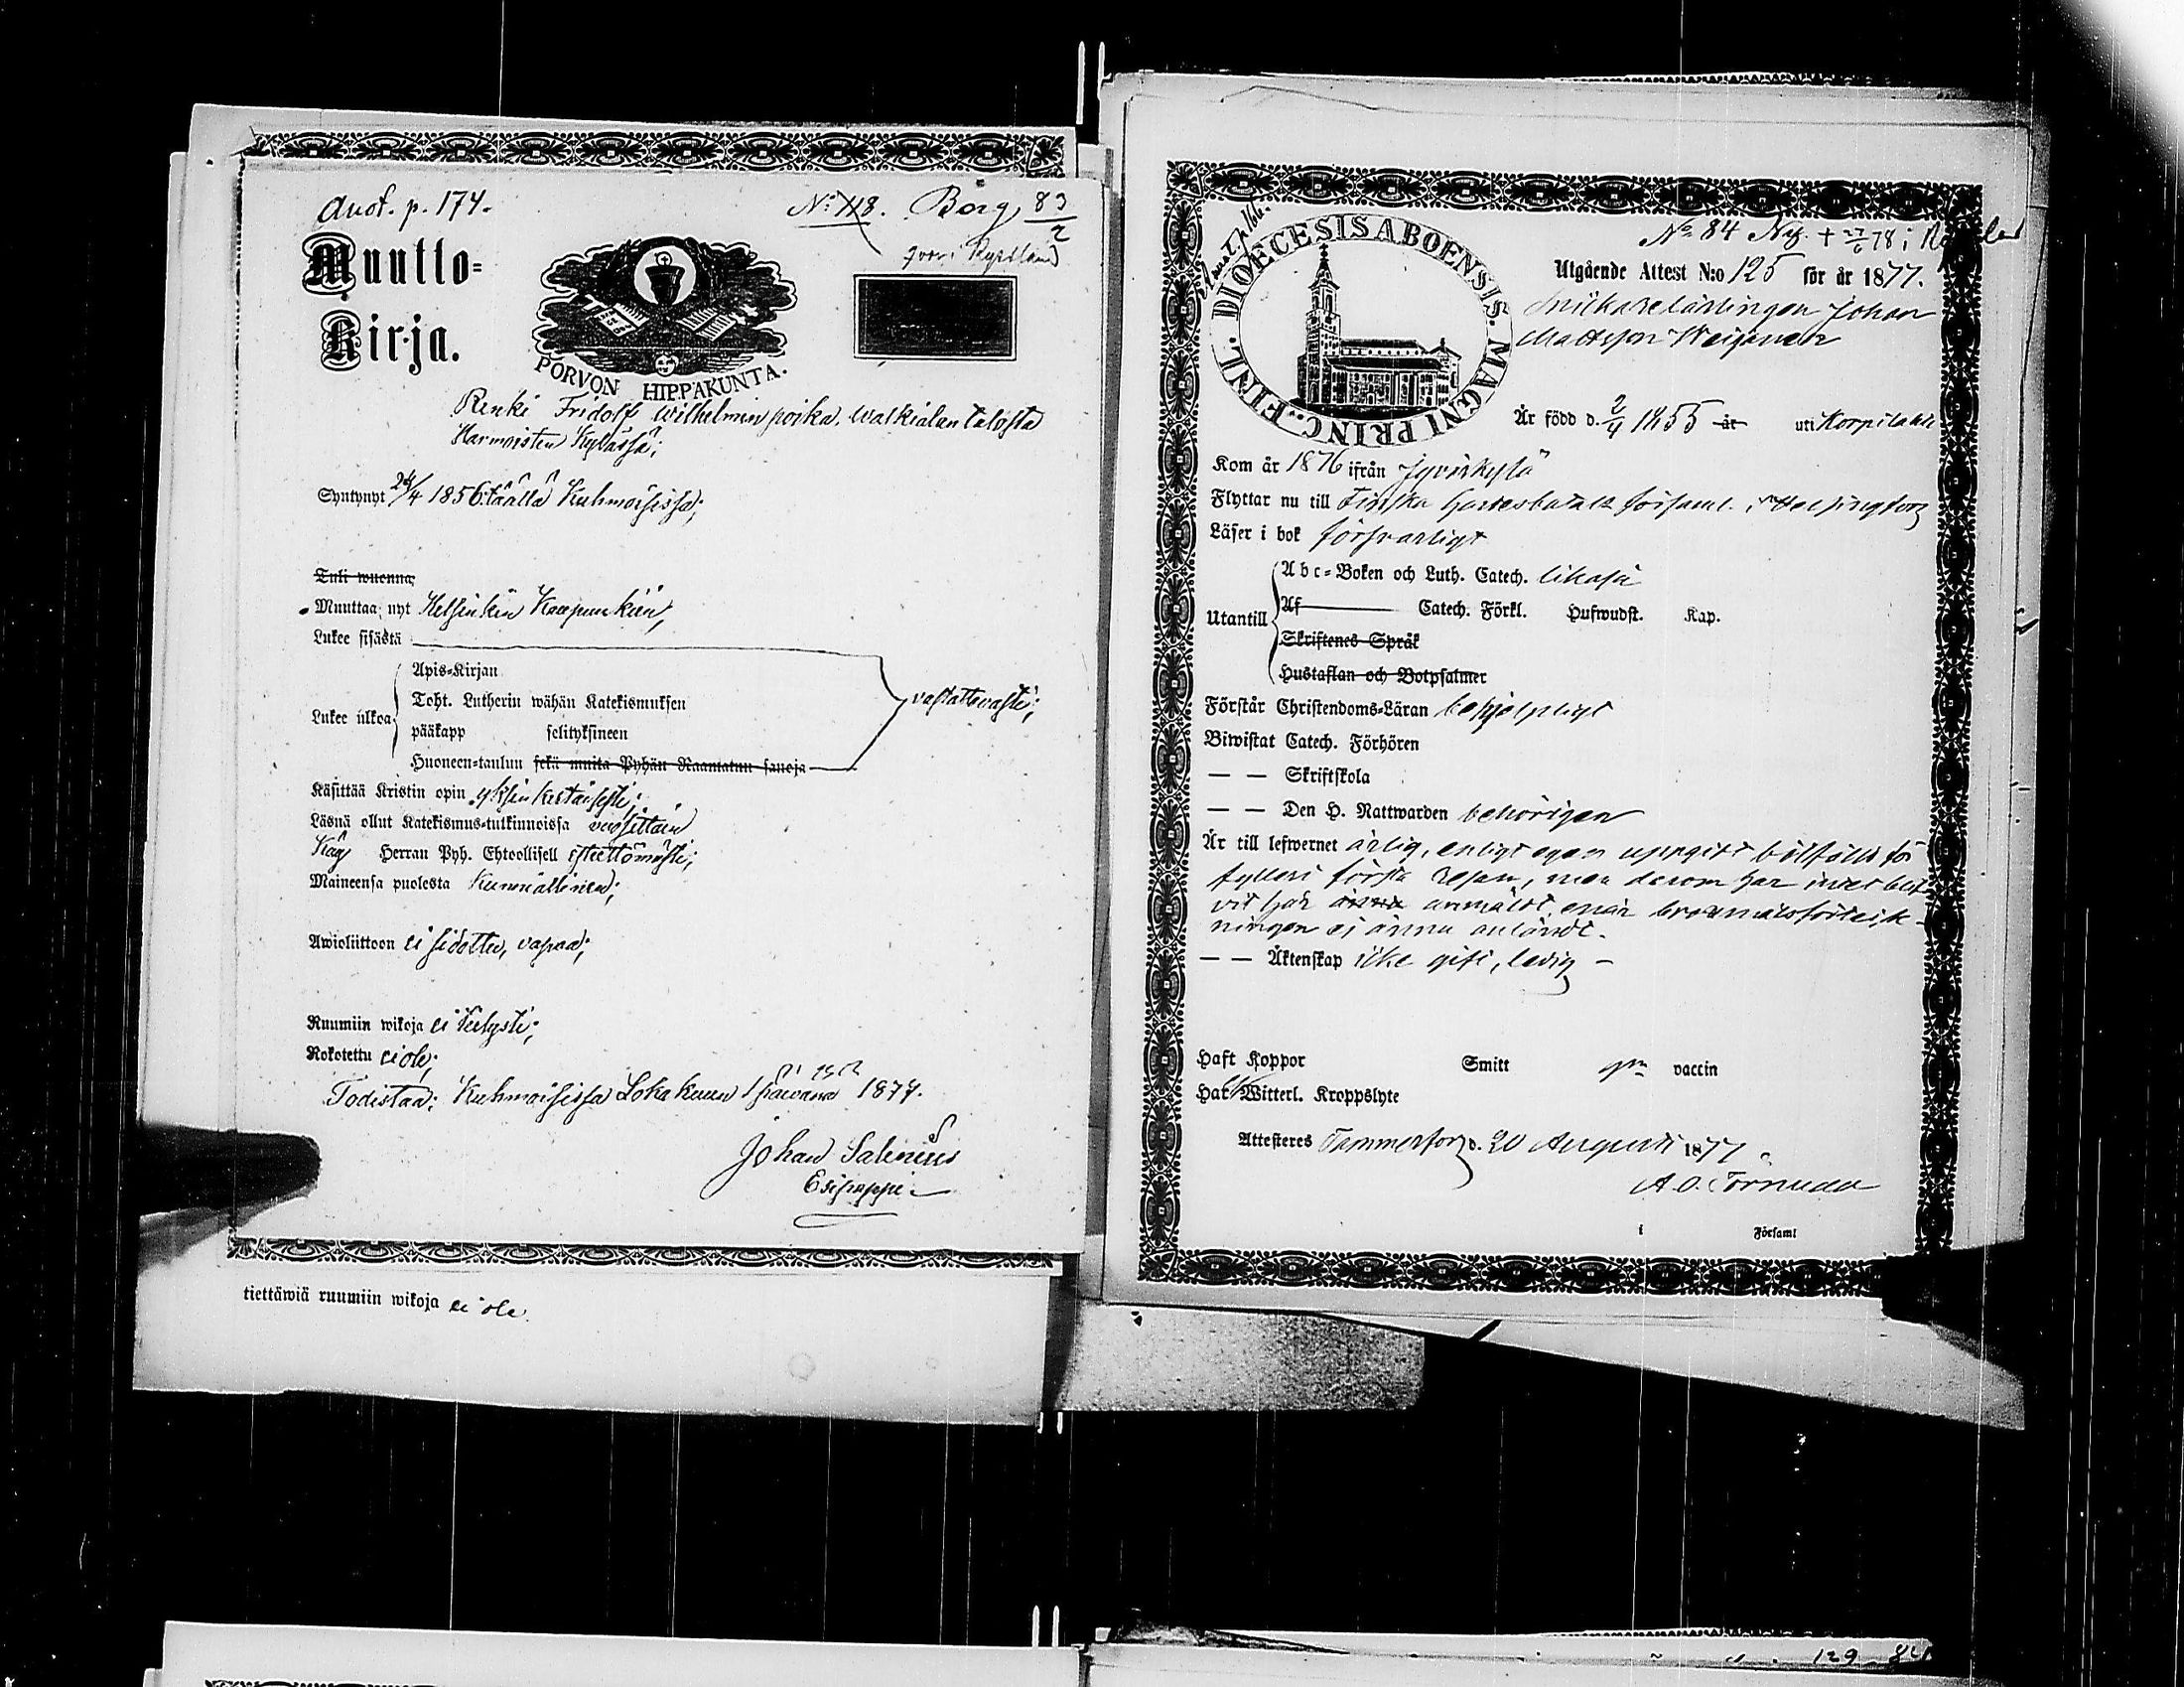 Anot. p. 174.
No 118. Borg 83/2
Muutto=
Kirja.
PORVON HIPPAKUNTA.
Renki Fridolf Wilhelmin poika, Walkialan talosta
Harmoisten Kylässä;
Syntynyt 24/4 1856 täällä Kuhmoisissa;
Tuli wuonna
Muuttaa nyt Helsinkin Kaupunkiin,
Lukee sisästä
Lukee ulkoa
Apis=Kirjan
Toht. Lutherin wähän Katekismuksen
pääkapp selityksineen
Huoneen=taulun sekä muita Pyhän Raamatun sanoja
vastattavasti;
Käsittää Kristin opin yksinkertaisesti;
Läsnä ollut Katekismus=tutkinnoissa vuosittain
Käy Herran Pyh. Ehtoollisell esteettömästi;
Maineensa puolesta Kunniallinen;
Awioliittoon ei sidottu, vapaa;
Ruumiin wikoja ei
Rokotettu ei ole;
Todistaa: Kuhmoisissa Lokakuun 1 päivänä 1877.
Johan Salenius
Esipappi.
tiettäwiä ruumiin wikoja ei ole.
No 84 Ny. + 27/6 78 i
DIOECESIS ABOENSIS. MAGNI PRINC. FINL.
Utgående Attest N:o 125 för år 1877.
Snickarelärlingen Johan
Mattsson
Är född d. 2/4 1855 år uti Korpilaks
Kom år 1876 ifrån Jyväskylä
Flyttar nu till Finska Gardesbatalj. församl. i Helsingfors
Läser i bok försvarligt
Utantill
Abc=Boken och Luth. Catech. likaså
Af Catech. Förkl. Hufwudst. Kap.
Skriftenes Språk
Hustaflan och Botpsalmer
Förstår Christendoms=Läran behjelpligt
Biwistat Catech. Förhören
— — Skriftskola
— — Den H. Nattwarden behörigen
Är till lefwernet ärlig, enligt egen uppgift bötfälld för
fylleri första resan, men derom har intet blif
vit här ännu anmäldt, enär brottmålsförteck-
ningen ej ännu anländt.
— — Äktenskap icke gift, ledig —
Haft Koppor Smitt gm vaccin
Har ej Witterl. Kroppslyte
Attesteres Tammerfors d. 20 Augusti 1877.
A. O. Törnudd
i Församl
129 84